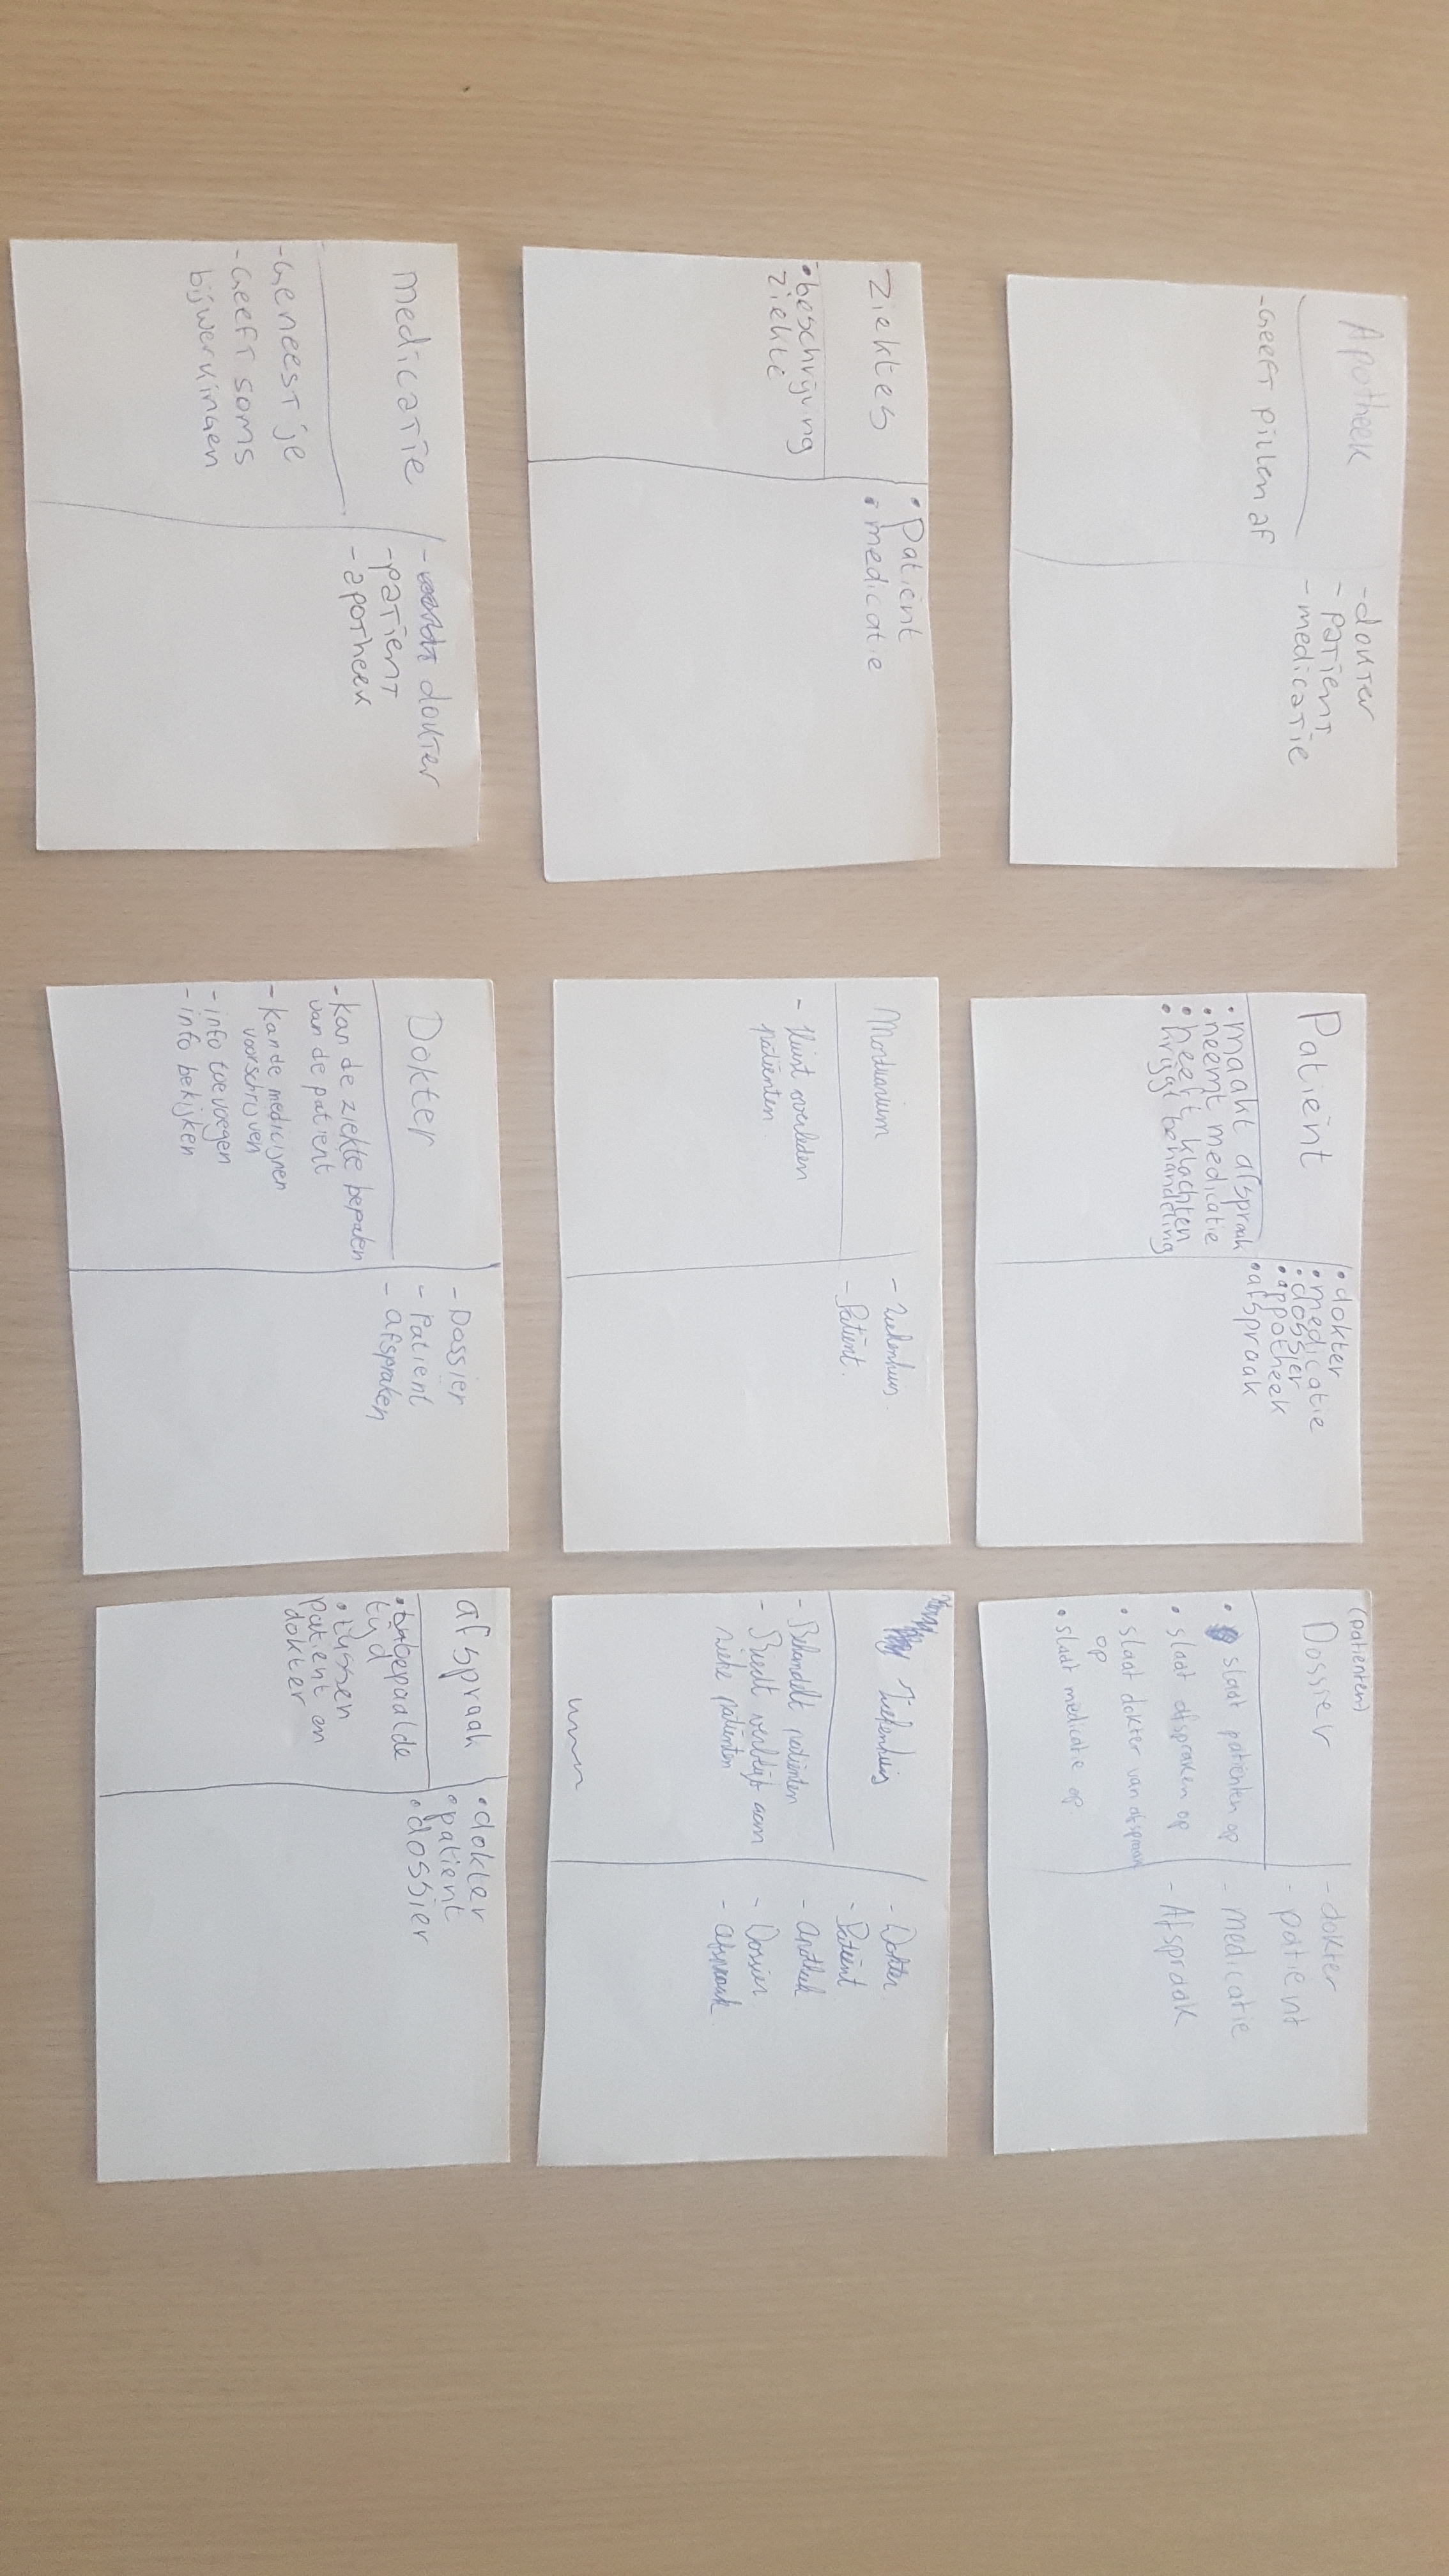 Apotheek
- Geeft pillen af
- dokter
- patient
- medicatie
Patiënt
• maakt afspraak
• neemt medicatie
• heeft klachten
• krijgt behandeling
• dokter
• medicatie
• dossier
• appotheek
• afspraak
(patienten)
Dossier
• slaat patiënten op
• slaat afspraken op
• slaat dokter van afspraak
op
• slaat medicatie op
- dokter
- patient
- medicatie
- Afspraak
Ziektes
• beschrijving
ziekte
• Patiënt
• medicatie
Mortuarium
- Kluist overleden
patiënten
- Ziekenhuis
- Patiënt.
Ziekenhuis
- Behandelt patiënten
- Biedt verblijf aan
zieke patiënten
- Dokter
- Patiënt
- Apotheek
- Dossier
- afspraak
medicatie
- Geneest je
- Geeft soms
bijwerkingen
- dokter
- patient
- apotheek
Dokter
- kan de ziekte bepalen
van de patient
- kan de medicijnen
voorschrijven
- info toevoegen
- info bekijken
- Dossier
- Patient
- afspraken
afspraak
• bepaalde
tijd
• tussen
patient en
dokter
• dokter
• patient
• dossier